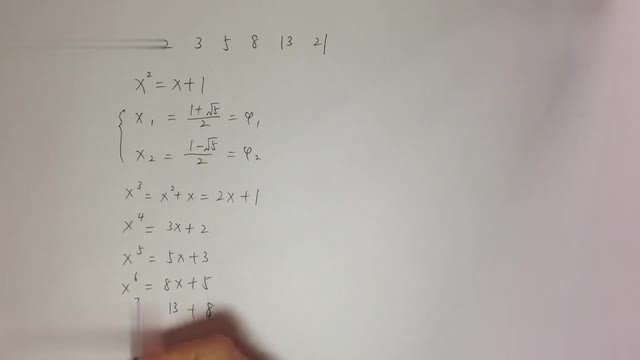 2 3 5 8 13 21
x² = x + 1
x₁ = (1+√5)/2 = φ₁
x₂ = (1−√5)/2 = φ₂
x³ = x² + x = 2x + 1
x⁴ = 3x + 2
x⁵ = 5x + 3
x⁶ = 8x + 5
13 + 8